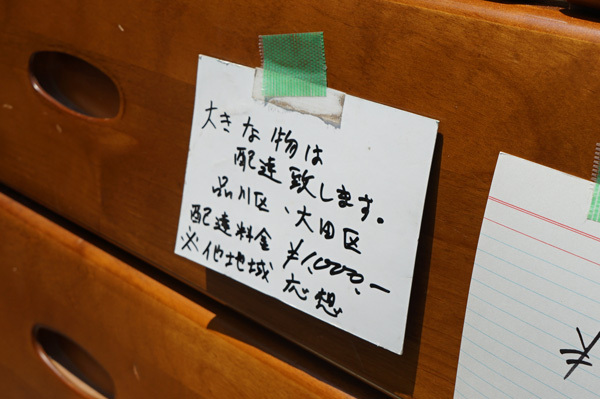 大きな物は
配達致します。
品川区、大田区
配達料金 ¥1,000.-
※他地域、応想
¥